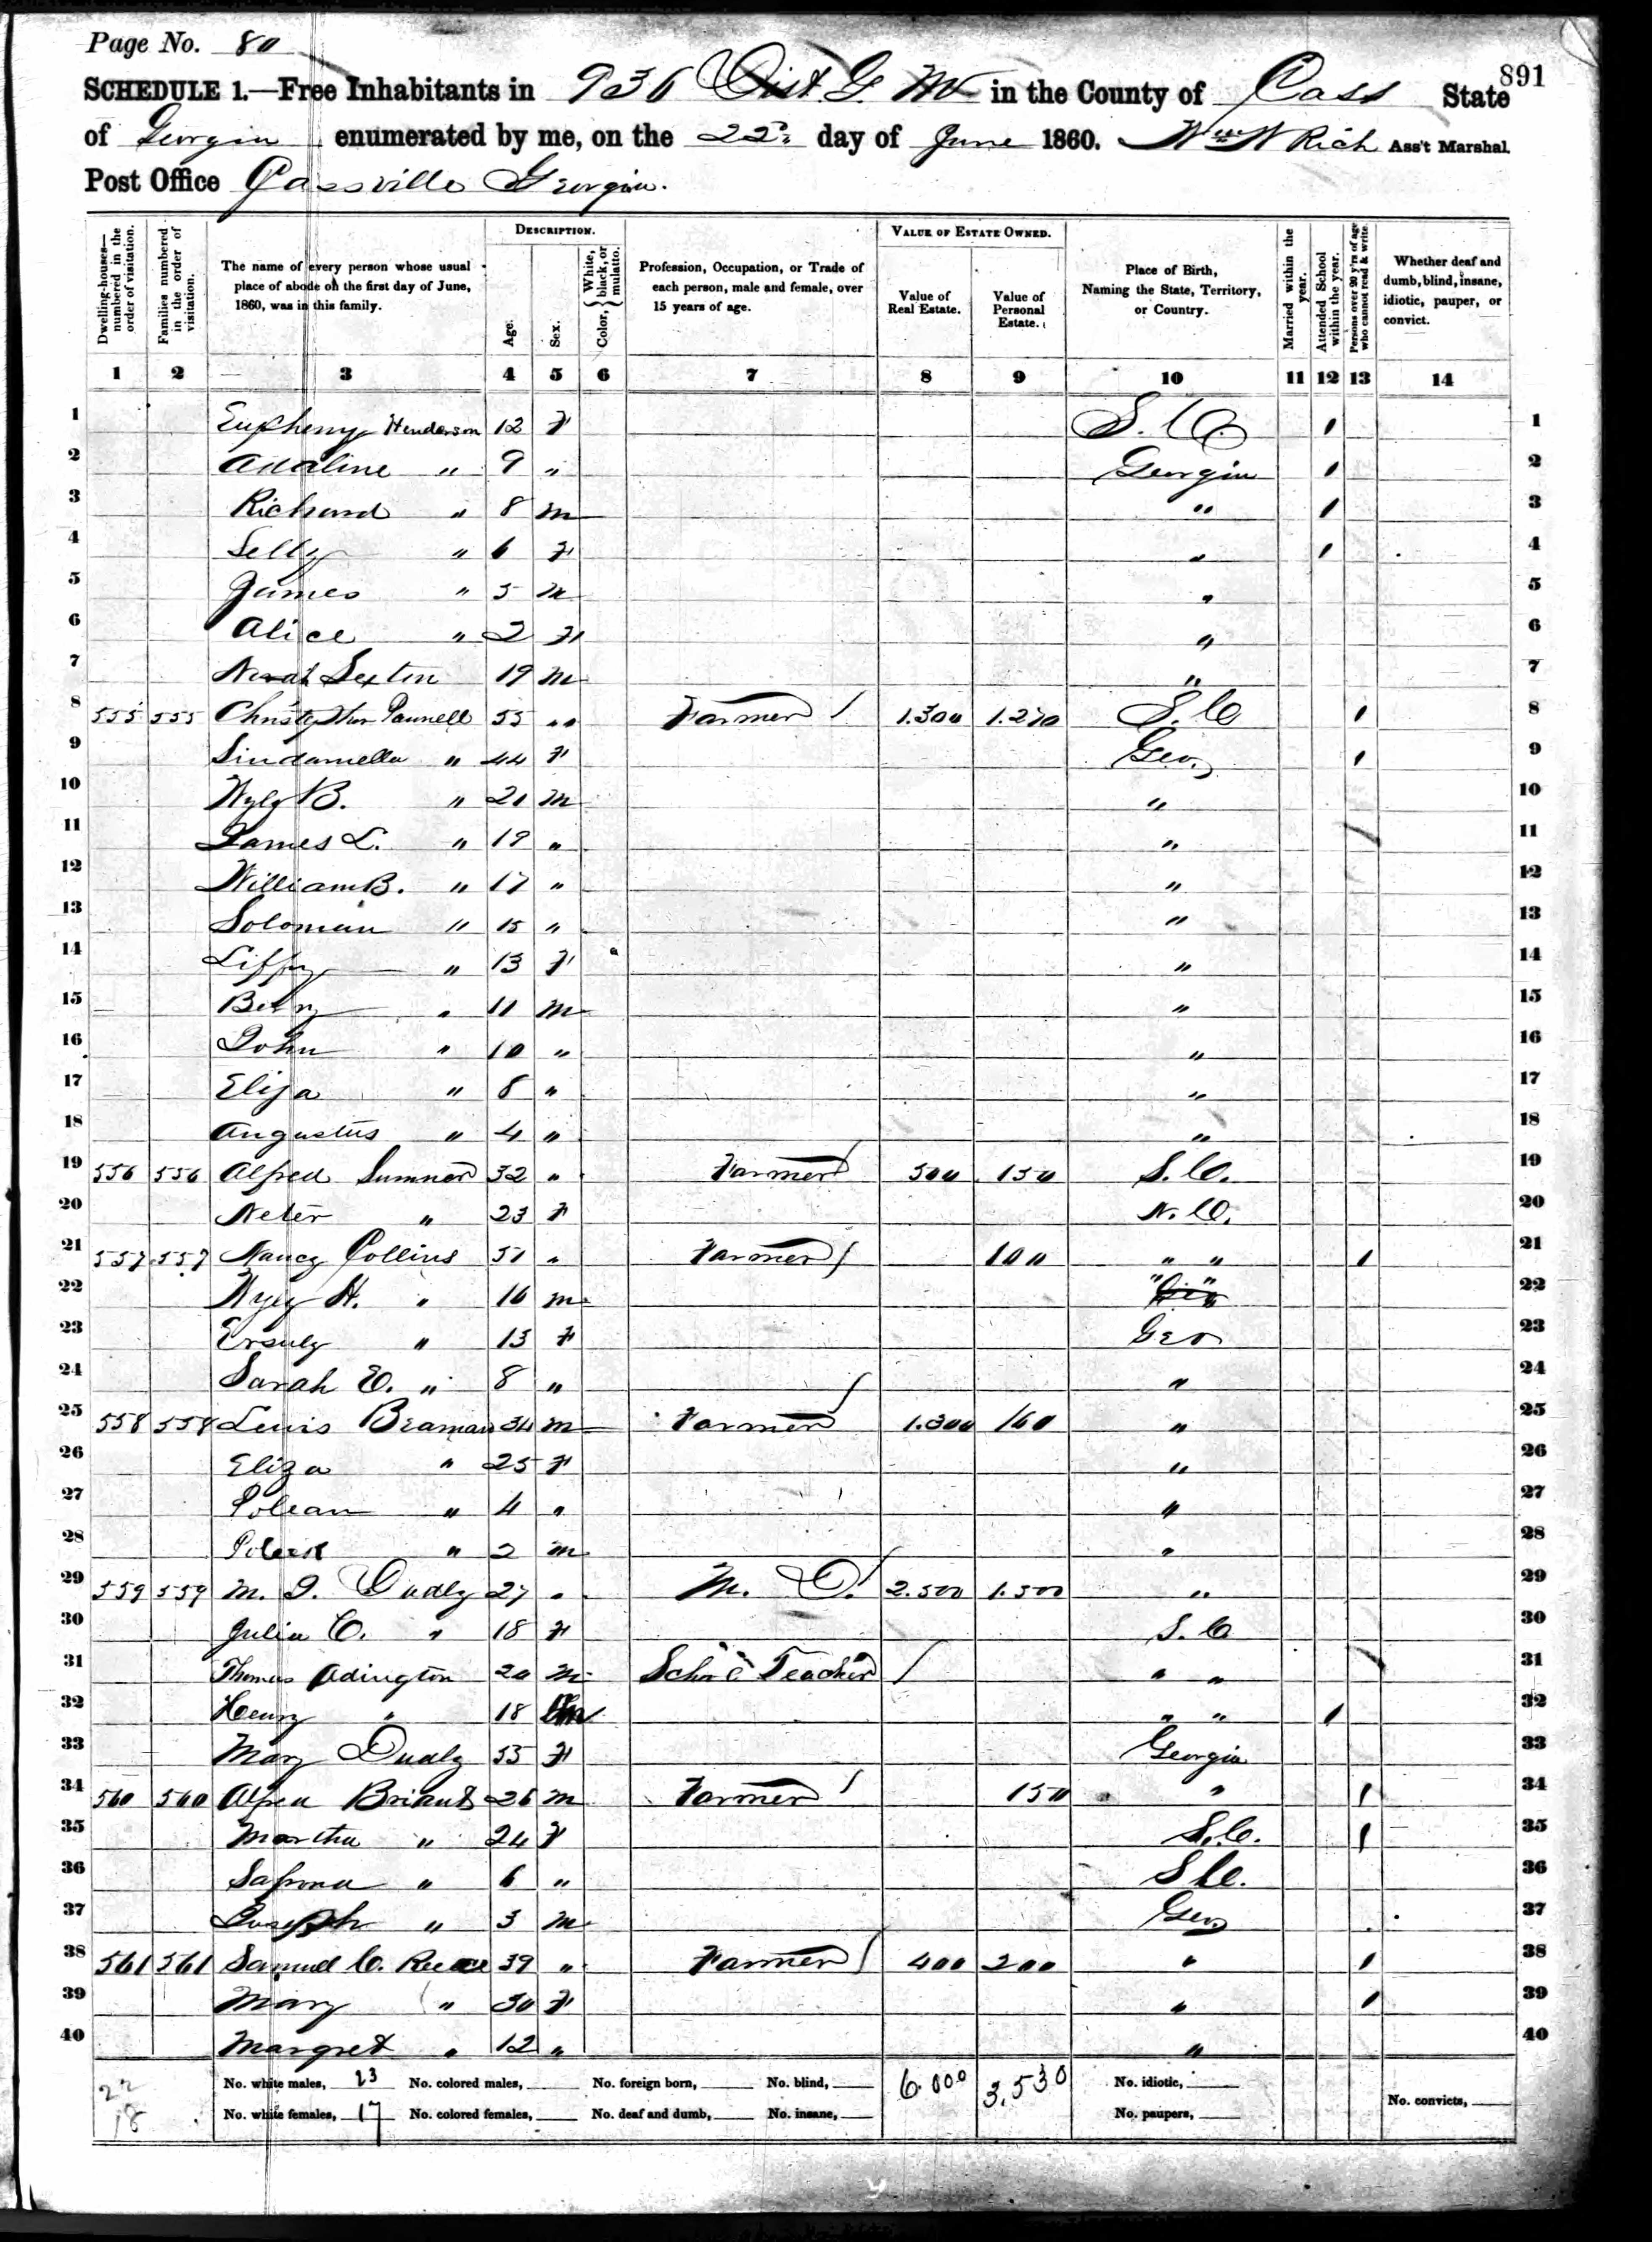 Page No. 80
891
SCHEDULE 1.—Free Inhabitants in 936 Dist. G. M in the County of Cass State
of Georgia enumerated by me, on the 22d day of June 1860. Wm W Rich Ass't Marshal.
Post Office Cassville Georgia.
Dwelling-houses—numbered in the order of visitation.
Families numbered in the order of visitation.
The name of every person whose usual place of abode on the first day of June, 1860, was in this family.
DESCRIPTION.
Age.
Sex.
Color, { White, black, or mulatto.
Profession, Occupation, or Trade of each person, male and female, over 15 years of age.
VALUE OF ESTATE OWNED.
Value of Real Estate.
Value of Personal Estate.
Place of Birth, Naming the State, Territory, or Country.
Married within the year.
Attended School within the year.
Persons over 20 y'rs of age who cannot read & write.
Whether deaf and dumb, blind, insane, idiotic, pauper, or convict.
1 2 3 4 5 6 7 8 9 10 11 12 13 14
1 Eupheny Henderson 12 F S. C. / 1
2 Adaline " 9 " Georgia / 2
3 Richard " 8 m " / 3
4 Selly " 6 F " / 4
5 James " 5 m " 5
6 Alice " 2 F " 6
7 Sexton 19 m " 7
8 555 555 Christopher Pannell 55 " Farmer / 1.300 1.270 S. C / 8
9 Sindamella " 44 F Geo. / 9
10 Wyly B. " 21 m " 10
11 James L. " 19 " " 11
12 William B. " 17 " " 12
13 Soloman " 15 " " 13
14 Liffy " 13 F " 14
15 " 11 m " 15
16 John " 10 " " 16
17 Eliza " 8 " " 17
18 Augustus " 4 " " 18
19 556 556 Alfred Sumner 32 " Farmer / 500 150 S. C. 19
20 Neter " 23 F N. C. 20
21 557 557 Nancy Collins 51 " Farmer / 100 " " / 21
22 Wyly H. " 16 m " " 22
23 Ersuly " 13 F Geo 23
24 Sarah E. " 8 " " 24
25 558 558 Lewis Beaman 34 m Farmer / 1.300 160 " 25
26 Eliza " 25 F " 26
27 Polean " 4 " " 27
28 " 2 m " 28
29 559 559 M. J. Dudly 27 " M. D. / 2.500 1.500 " 29
30 Julia C. " 18 F S. C 30
31 Thomas Adington 20 m School Teacher / " " 31
32 Henry " 18 m " " / 32
33 Mary Dudly 55 F Georgia 33
34 560 560 Alfred Briant 26 m Farmer / 150 " / 34
35 Martha " 24 F S. C. / 35
36 Safrona " 6 " S C. 36
37 Joseph " 3 m Geo 37
38 561 561 Samuel C. Reece 39 " Farmer / 400 200 " / 38
39 Mary " 30 F " / 39
40 Margret " 12 " " 40
22
18
No. white males, 23 No. colored males, No. foreign born, No. blind, 6.000 3.530 No. idiotic,
No. white females, 17 No. colored females, No. deaf and dumb, No. insane, No. paupers, No. convicts,